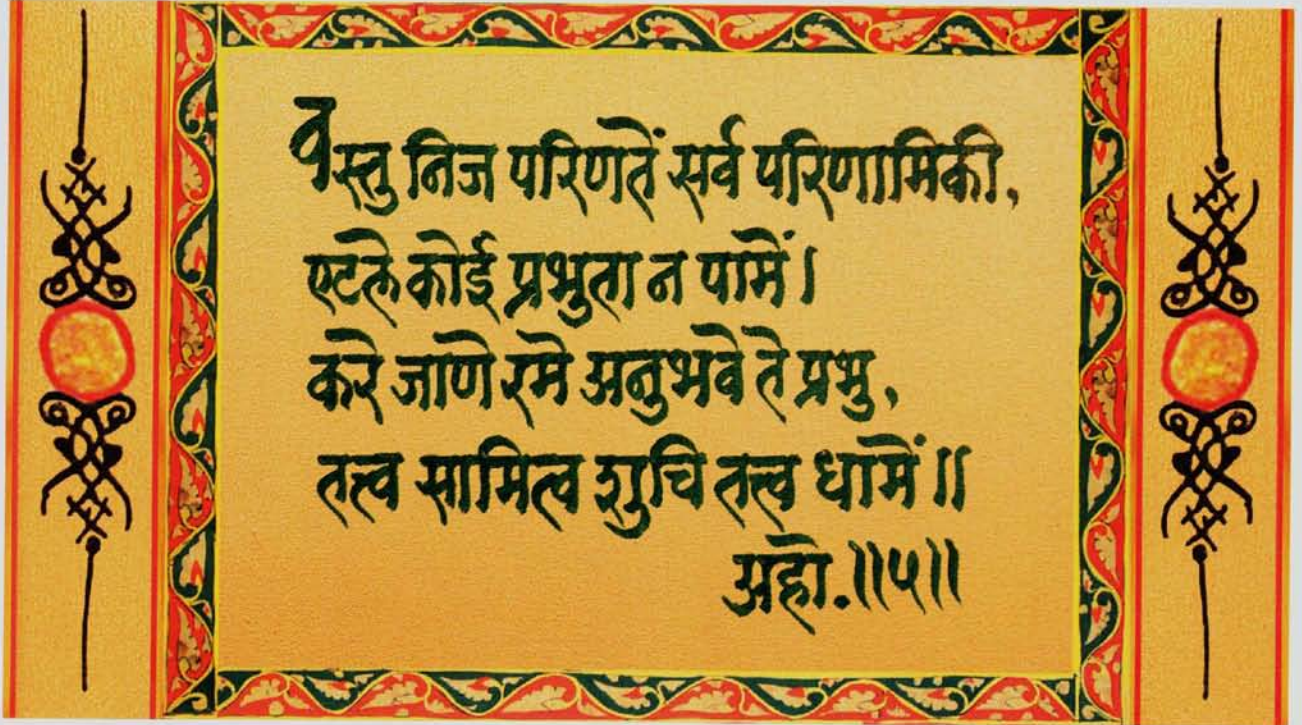 वस्तु निज परिणतें सर्व परिणामिकी,
एटले कोई प्रभुता न पामें।
करे जाणे रमे अनुभवे ते प्रभु,
तत्त्व सामित्व शुचि तत्त्व धामें॥
अहो.॥५॥